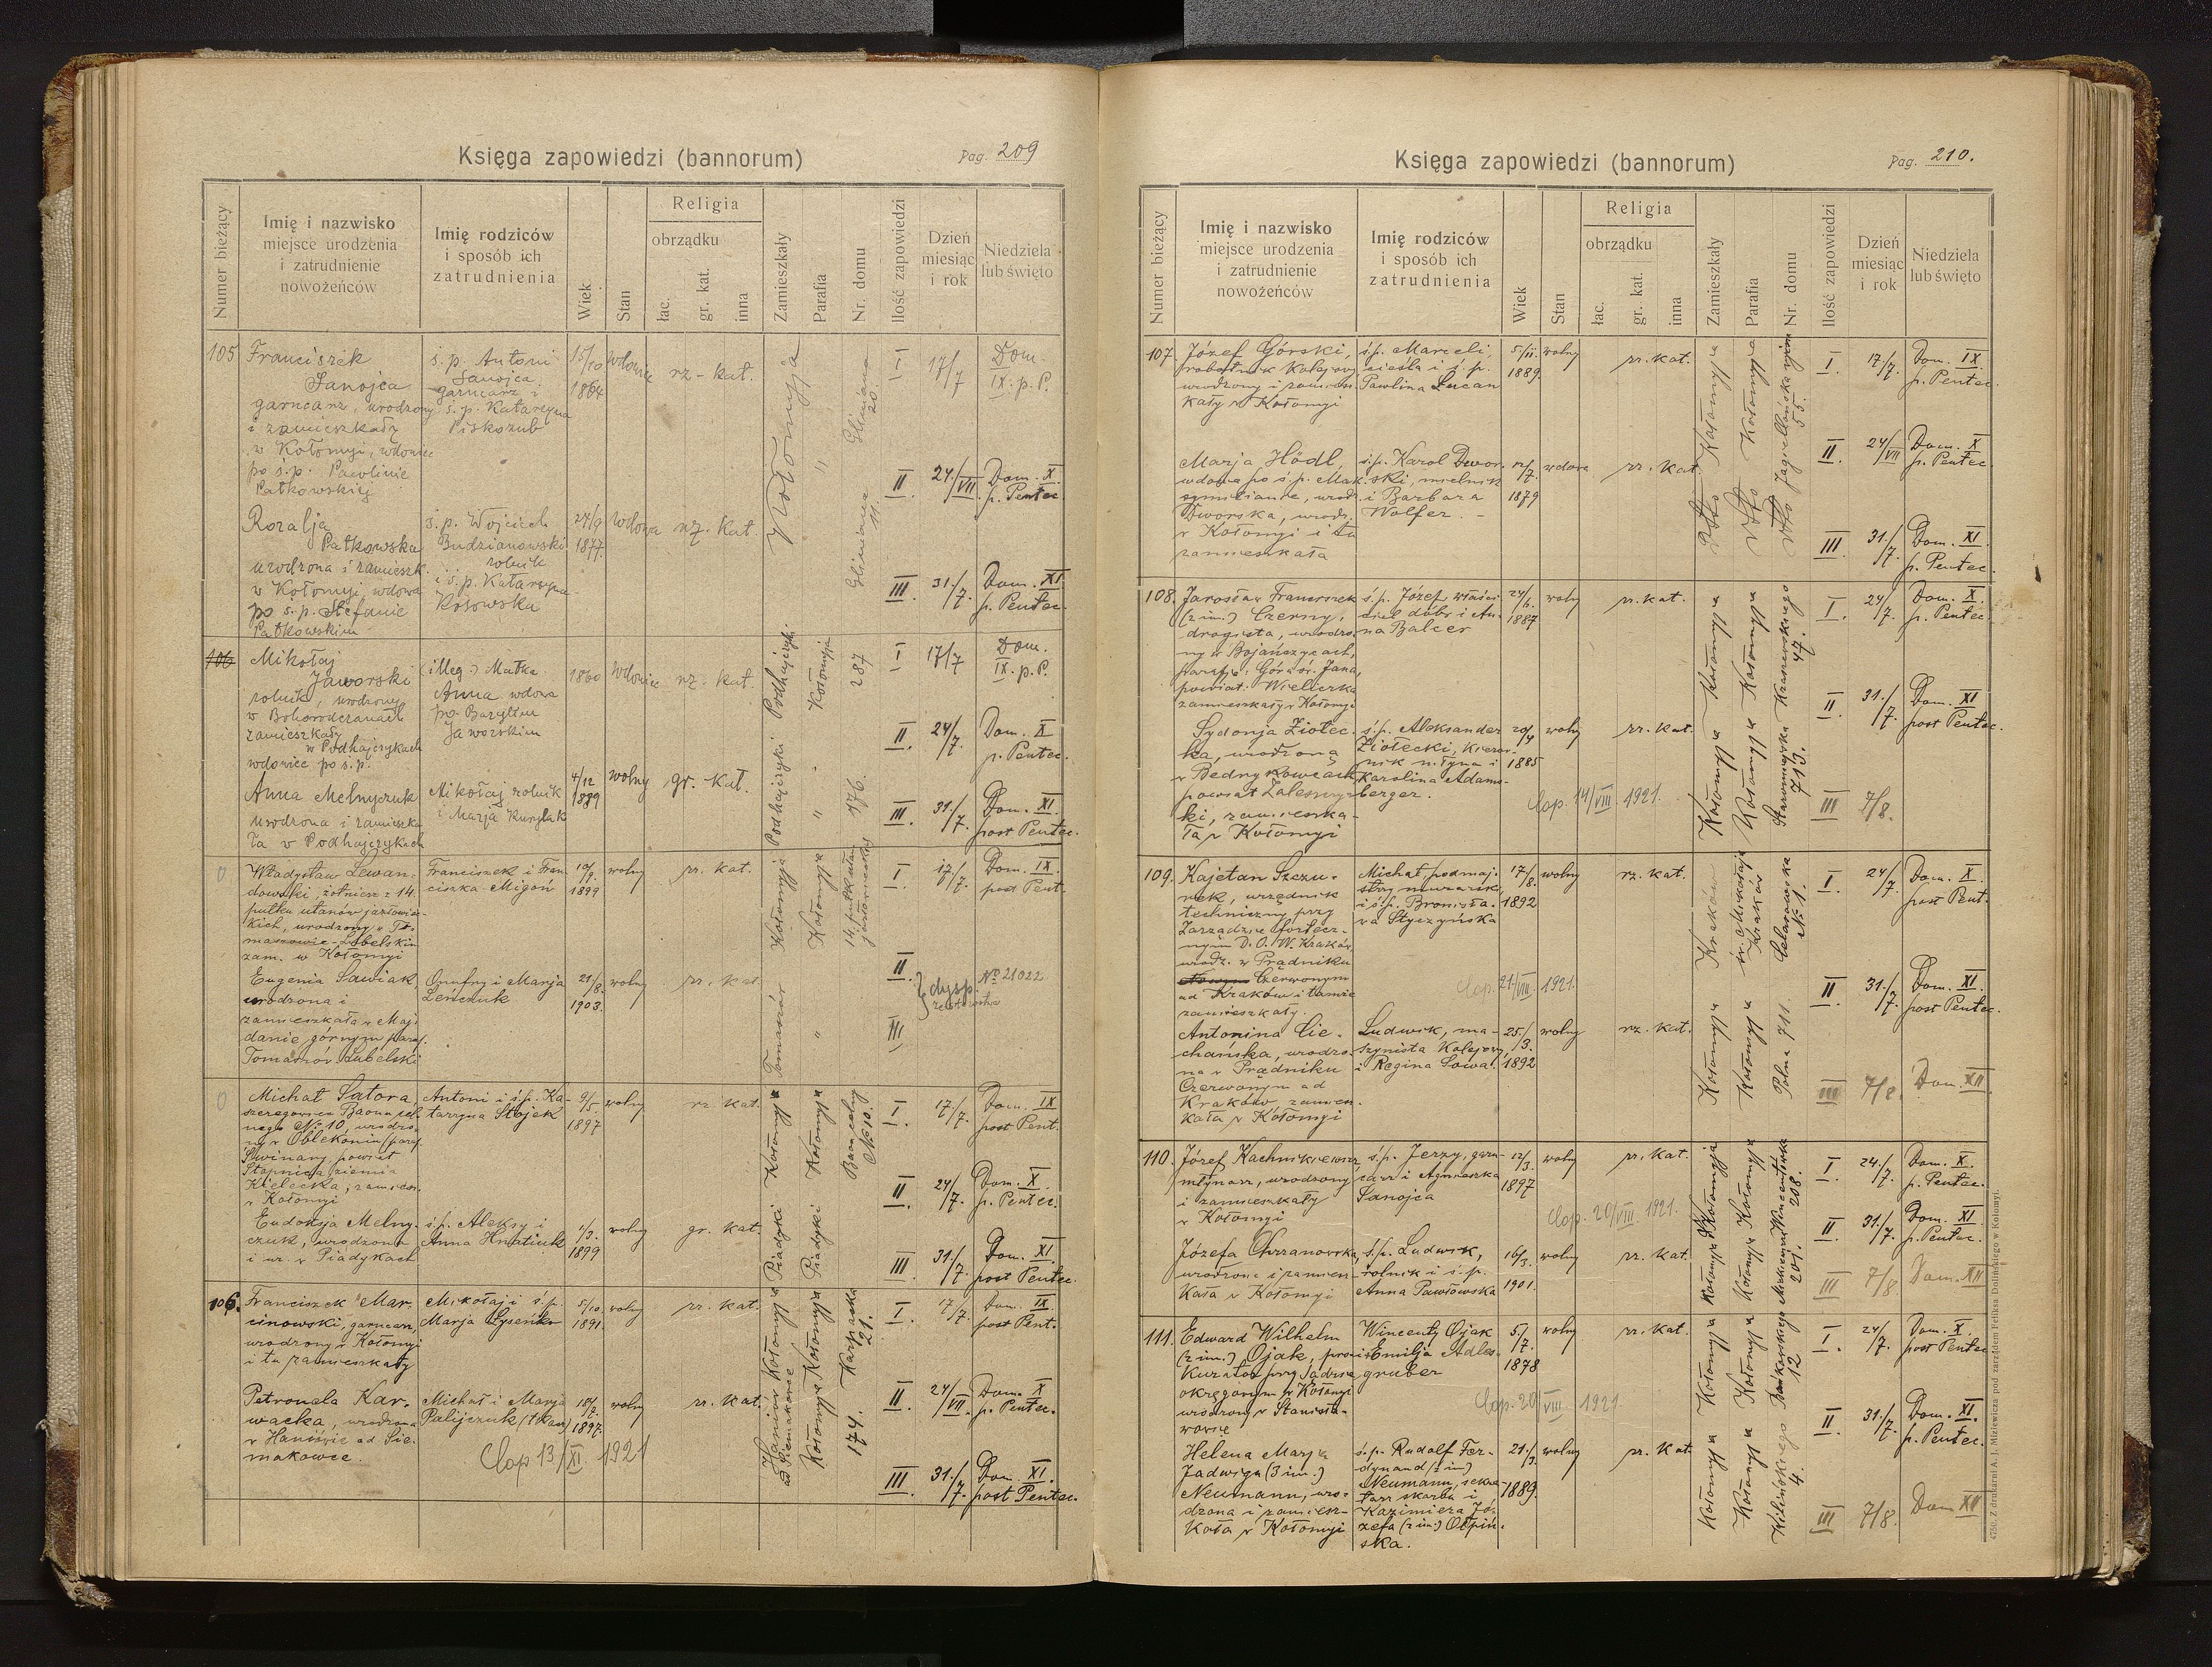 Księga zapowiedzi (bannorum)
Pag. 209
Numer bieżący
Imię i nazwisko
miejsce urodzenia
i zatrudnienie
nowożeńców
Imię rodziców
i sposób ich
zatrudnienia
Wiek
Stan
Religia
obrządku
łac.
gr. kat.
inna
Zamieszkały
Parafia
Nr. domu
Ilość zapowiedzi
Dzień
miesiąc
i rok
Niedziela
lub święto
105
Franciszek
Sanojca
garncarz, urodzony
i zamieszkały
w Kołomyi, wdowiec
po ś.p. Pawlinie
Patkowskiej
ś.p. Antoni
Sanojca
garncarz i
ś.p. Katarzyna
Piskozub
15/10
1864
wdowiec
rz-kat.
Kołomyja
Gliniana
20.
I
17/7
Dom.
IX. p. P.
II
24/VII
Dom. X
p. Pentec.
Rozalja
Patkowska
urodzona i zamieszk.
w Kołomyi, wdowa
po ś.p. Stefanie
Patkowskim
ś.p. Wojciech
Budzianowski
rolnik
i ś.p. Katarzyna
Kosowska
24/9
1877
wdowa
rz. kat.
"
Gliniana
11.
III
31./7.
Dom. XI
p. Pentec.
106
Mikołaj
Jaworski
rolnik, urodzony
w Bohorodczanach
zamieszkały
w Podhajczykach
wdowiec po ś.p.
(illeg.) Matka
Anna wdowa
po Bazylim
Jaworskim
1860
wdowiec
rz. kat.
Podhajczyki
Kołomyja
287
I
17/7
Dom.
IX. p. P.
II
24/7.
Dom. X
p. Pentec.
Anna Melnyczuk
urodzona i zamieszka
ła w Podhajczykach
Mikołaj rolnik
i Marja Kurylak
4/12
1889
wolny
gr. kat.
Podhajczyki
"
176.
III
31./7.
Dom. XI.
post Pentec.
0
Władysław Lewan-
dowski żołnierz 14.
pułku ułanów jazłowie-
kich, urodzony w To-
maszowie-Lubelskim
zam. w Kołomyi
Franciszek i Fran
ciszka Migoń
1899
wolny
rz. kat.
Kołomyja
Kołomyja
14. pułk ułan.
jazłowieckich
I
17/7.
Dom. IX
post Pent.
Eugenia Sawiak,
urodzona i
zamieszkała w Maj-
danie górnym paraf.
Tomaszów Lubelski
Onufry i Marja
Leńczuk
21/8.
1903.
wolny
rz. kat.
Tomaszów
"
II
III
dysp. No 21022
0
Michał Satora,
szeregowiec Baonu cel
nego No 10, urodzo-
ny w Oblekoniu (paraf.
Świniary, powiat
Stopnica, ziemia
Kielecka, zamiesz.
w Kołomyi
Antoni i ś.p. Ka-
tarzyna Stojek
9/5.
1897
wolny
rz. kat.
Kołomyja
Kołomyja
Baon celny
No 10.
I
17/7.
Dom. IX
post Pent.
II
24/7.
Dom. X
p. Pentec.
Eudoksja Melny-
czuk, urodzona
i ur. w Piadykach
ś.p. Aleksy i
Anna Hnatiuk
1/3.
1899
wolny
gr. kat.
Piadyki
Piadyki
III
31/7.
Dom. XI
post Pentec.
106.
Franciszek Mar-
cinowski, garncarz,
urodzony w Kołomyi
i tu zamieszkały
Mikołaj i ś.p.
Marja Łysenko
5/10.
1891.
wolny
rz. kat.
Kołomyja
Kołomyja
Karpacka
21.
I
17/7.
Dom. IX
post Pent.
Petronela Kar-
wacka, urodzona
w Haniowie ad Sie-
makowce.
Michał i Marja
Palijczuk
18/7.
1897.
wolny
rz. kat.
Haniów
ad Siemakowce
Kołomyja
174.
II
24/VII.
Dom. X
p. Pentec.
Cop 13/XI. 1921
III
31./7.
Dom. XI.
post Pentec.
Księga zapowiedzi (bannorum)
Pag. 210.
Numer bieżący
Imię i nazwisko
miejsce urodzenia
i zatrudnienie
nowożeńców
Imię rodziców
i sposób ich
zatrudnienia
Wiek
Stan
Religia
obrządku
łac.
gr. kat.
inna
Zamieszkały
Parafia
Nr. domu
Ilość zapowiedzi
Dzień
miesiąc
i rok
Niedziela
lub święto
107.
Józef Górski,
robotnik kolejowy
urodzony i zamiesz-
kały w Kołomyi
ś.p. Marceli,
cieśla i ś.p.
Pawlina Lucan
5/II.
1889.
wolny
rz. kat.
Kołomyja
Kołomyja
Jagiellońska
55.
I.
17./7.
Dom. IX
p. Pentec.
II
24/VII
Dom. X
p. Pentec.
Marja Hödl,
wdowa po ś.p. Mak-
symilianie, urodz.
Dworska, urodz.
w Kołomyi i tu
zamieszkała
ś.p. Karol Dwor-
ski, mielnik
i Barbara
Wolfer.
12/7.
1879
wdowa
rz. kat.
III
31./7.
Dom. XI
p. Pentec.
108.
Jarosław Franciszek
(2 im.) Czerny,
drogista, urodzo-
ny w Bojańczycach,
parafja Góra św. Jana,
powiat. Wieliczka
zamieszkały w Kołomyi
ś.p. Józef właści-
ciel dóbr i An-
na Balcer
1887
wolny
rz. kat.
Kołomyja
Kołomyja
Kraszewskiego
47.
I.
24/7.
Dom. X.
p. Pentec.
II
31./7.
Dom. XI
post Pentec.
Sydonja Ziołec-
ka, urodzona
w Bednykowcach
powiat Zaleszczyc-
ki, zamieszka-
ła w Kołomyi
ś.p. Aleksander
Ziołecki, kierow-
nik młyna i
Karolina Adams-
berger.
20/4
1885
wolny
rz. kat.
Kołomyja
Kołomyja
Staromiejska
713.
Cop. 14/VIII 1921.
III
7/8.
109.
Kajetan Szczu-
rek, urzędnik
techniczny przy
Zarządzie fortecz-
nym D. O. W. Kraków
urodz. w Prądniku
Czerwonym
ad Kraków i tamże
zamieszkały.
Michał, podmaj-
strzy murarski,
i ś.p. Bronisła-
wa Styczyńska
17/8.
1892
wolny
rz. kat.
Kraków
św. Mikołaja
Kraków
Celarowska
No 1.
I
24/7.
Dom. X.
post Pent.
Cop. 21/VIII. 1921.
II
31./7.
Dom. XI.
post Pentec.
Antonina Cie-
chańska, urodzo-
na w Prądniku
Czerwonym ad
Kraków, zamiesz-
kała w Kołomyi
Ludwik, ma-
szynista kolejowy
i Regina Sowa.
25./3.
1892
wolny
rz. kat.
Kołomyja
Kołomyja
Polna 711.
III
7/8.
Dom. XII
110.
Józef Kachnikiewicz
młynarz, urodzony
i zamieszkały
w Kołomyi
ś.p. Jerzy, garn-
carz i Agnieszka
Sanojca
12/3.
1897
wolny
rz. kat.
Kołomyja
Kołomyja
Wincentówka
208.
I
24./7.
Dom. X.
p. Pentec.
Cop. 20/VIII. 1921.
II
31./7.
Dom. XI
p. Pentec.
Józefa Chrzanowska,
urodzona i zamiesz-
kała w Kołomyi
ś.p. Ludwik,
rolnik i ś.p.
Anna Pawłowska
16/3.
1901.
wolny
rz. kat.
Kołomyja
Kołomyja
201.
III
7/8.
Dom. XII
111.
Edward Wilhelm
(2 im.) Ojak,
kurator przy Sądzie
okręgowym w Kołomyi
urodzony w Stanisła-
wowie
Wincenty Ojak
i Emilja Adles-
gruber
5./7.
1878
wolny
rz. kat.
Kołomyja
Kołomyja
12
I
24/7.
Dom. X.
post Pentec
Cop. 20/VIII. 1921.
II
31./7.
Dom. XI.
p. Pentec.
Helena Marja
Jadwiga (3 im.)
Neumann, uro-
dzona i zamiesz-
kała w Kołomyi
ś.p. Rudolf Fer-
dynand (2 im)
Neumann, sekre-
tarz skarbu i
Kazimiera Jó-
zefa (2 im.) Ołpiń-
ska.
21./3.
1889.
wolny
rz. kat.
Kołomyja
Kołomyja
Kilińskiego
4.
III
7/8.
Dom XII
4750. Z drukarni A. J. Miziewicza pod zarządem Feliksa Dolińskiego w Kołomyi.